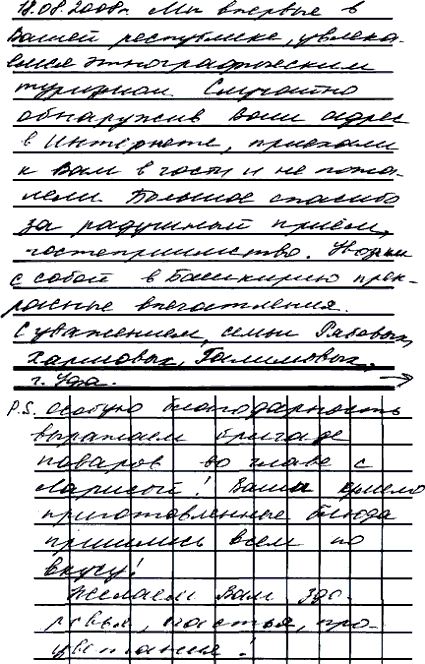 18.08.2008г. Мы впервые в
Вашей республике, увлека-
емся этнографическим
туризмом. Случайно
обнаружив ваш адрес
в Интернете, приехали
к Вам в гости и не пожа-
лели. Большое спасибо
за радушный приём,
гостеприимство. Увозим
с собой в Башкирию прек-
расные впечатления.
С уважением, семьи
Харисовых, Галимовых,
г. Уфа.
P.S. Особую благодарность
выражаем бригаде
поваров во главе с
Ларисой! Ваши
приготовленные блюда
пришлись всем по
вкусу!
Желаем Вам здо-
ровья, счастья, про-
цветания!